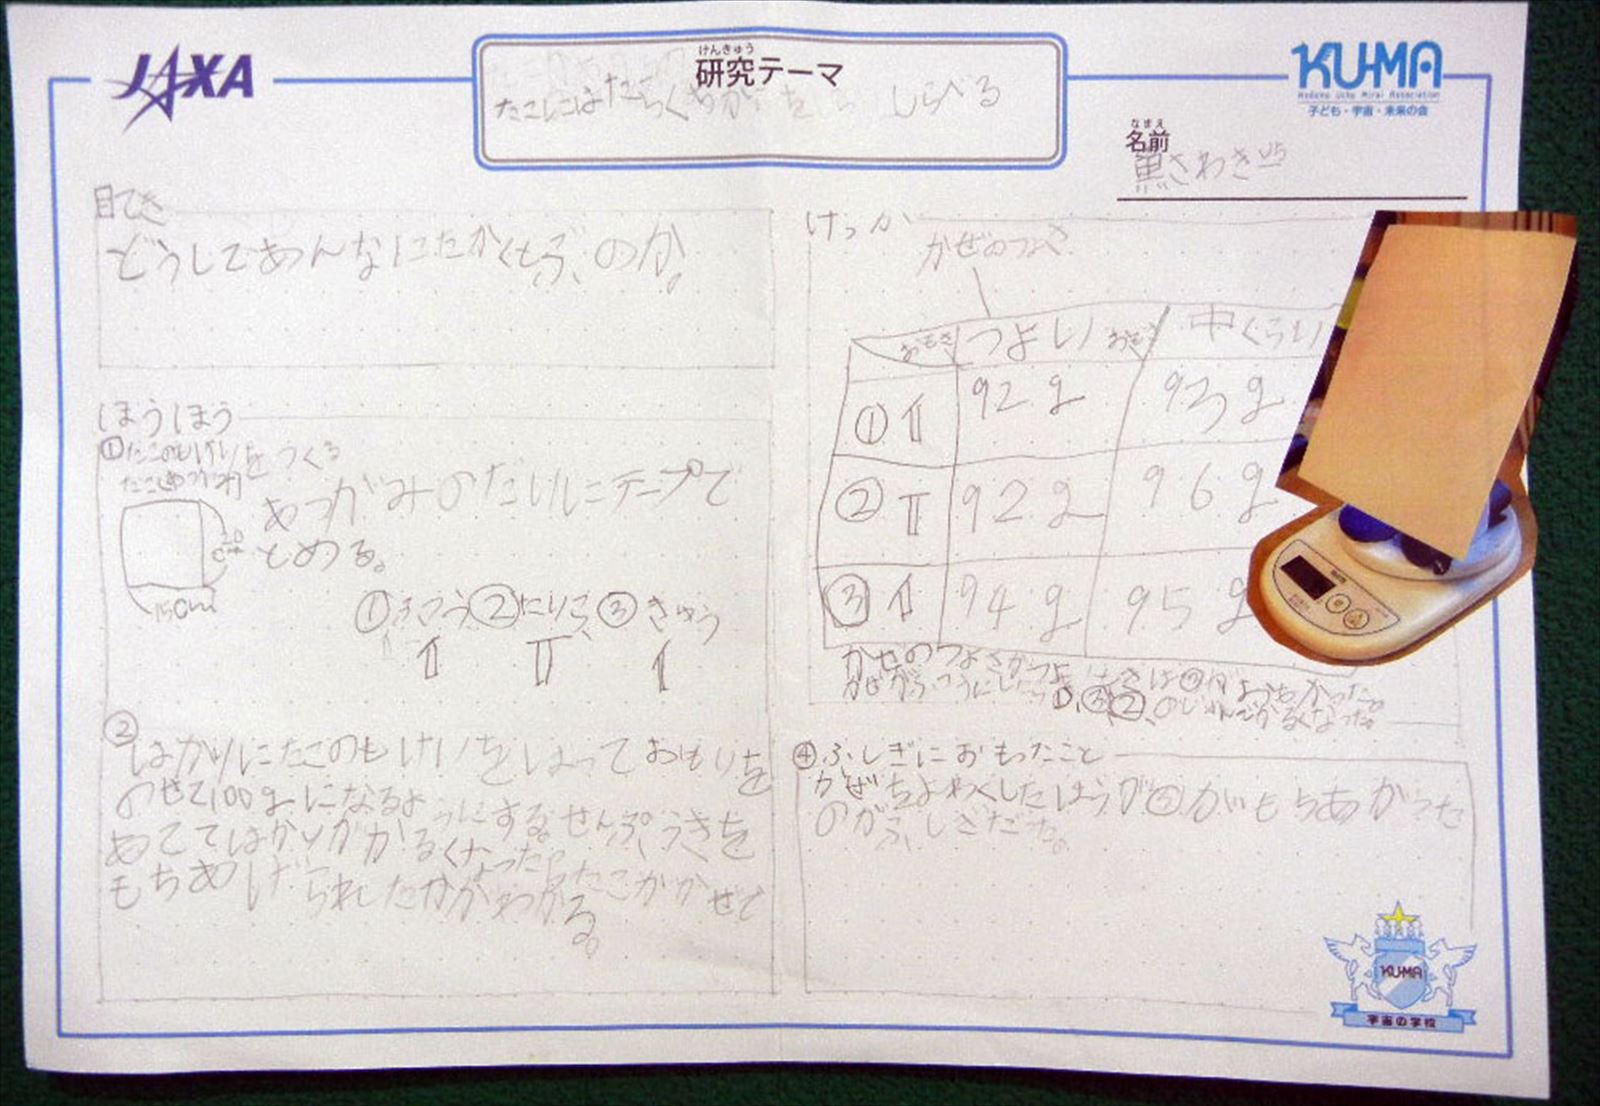 JAXA
けんきゅう
研究テーマ
たこにはたらくちからを しらべる
KU-MA
Kodomo Uchu Mirai Association
子ども・宇宙・未来の会
なまえ
名前
黒さわき
目てき
どうしてあんなにたかくとぶのか。
ほうほう
①たこのもけいをつくる
15cm
あつがみのたけにテープで
とめる。
① ② ③きゅう
②
はかりにたこのもけいをはっておもりを
のせて100gになるようにする。せんぷうきを
あててはかりがかるくなったらたこがかぜで
もちあげられたかがわかる。
けっか
かぜのつよさ
おもさ つよい おもさ 中くらい
① 92g 93g
② 92g 96g
③ 94g 95g
かぜのつよさがつよ ときは③がおもかった。
かぜがふつうにしたら①、③、②、のじゅんでかるくなった。
④ふしぎにおもったこと
かぜをよわくしたほうが がいもちあがった
のがふしぎだった。
KU-MA
宇宙の学校